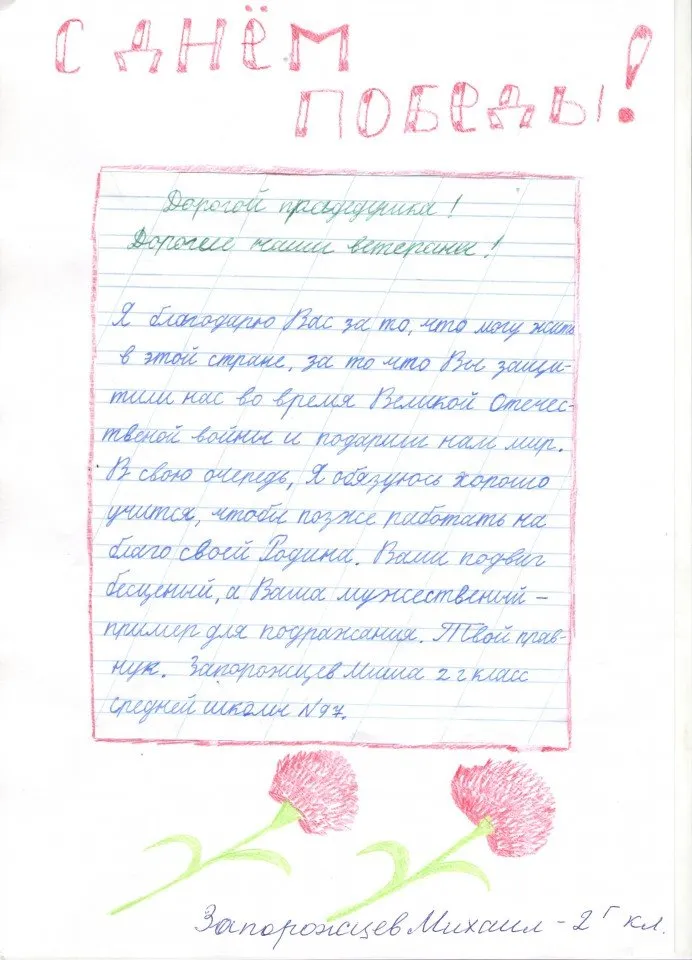 С ДНЁМ
ПОБЕДЫ!
Дорогой прадедушка!
Дорогие наши ветераны!
Я благодарю Вас за то, что могу жить
в этой стране, за то что Вы защи-
тили нас во время Великой Отечес-
твеной войны и подарили нам мир.
В свою очередь, Я обязуюсь хорошо
учится, чтобы позже работать на
благо своей Родина. Ваш подвиг
бесценый, а Ваша мужественый -
пример для подражания. Твой прав-
нук. Запорожцев Миша 2 г класс
средней школы N 97.
Запорожцев Михаил - 2 г кл.